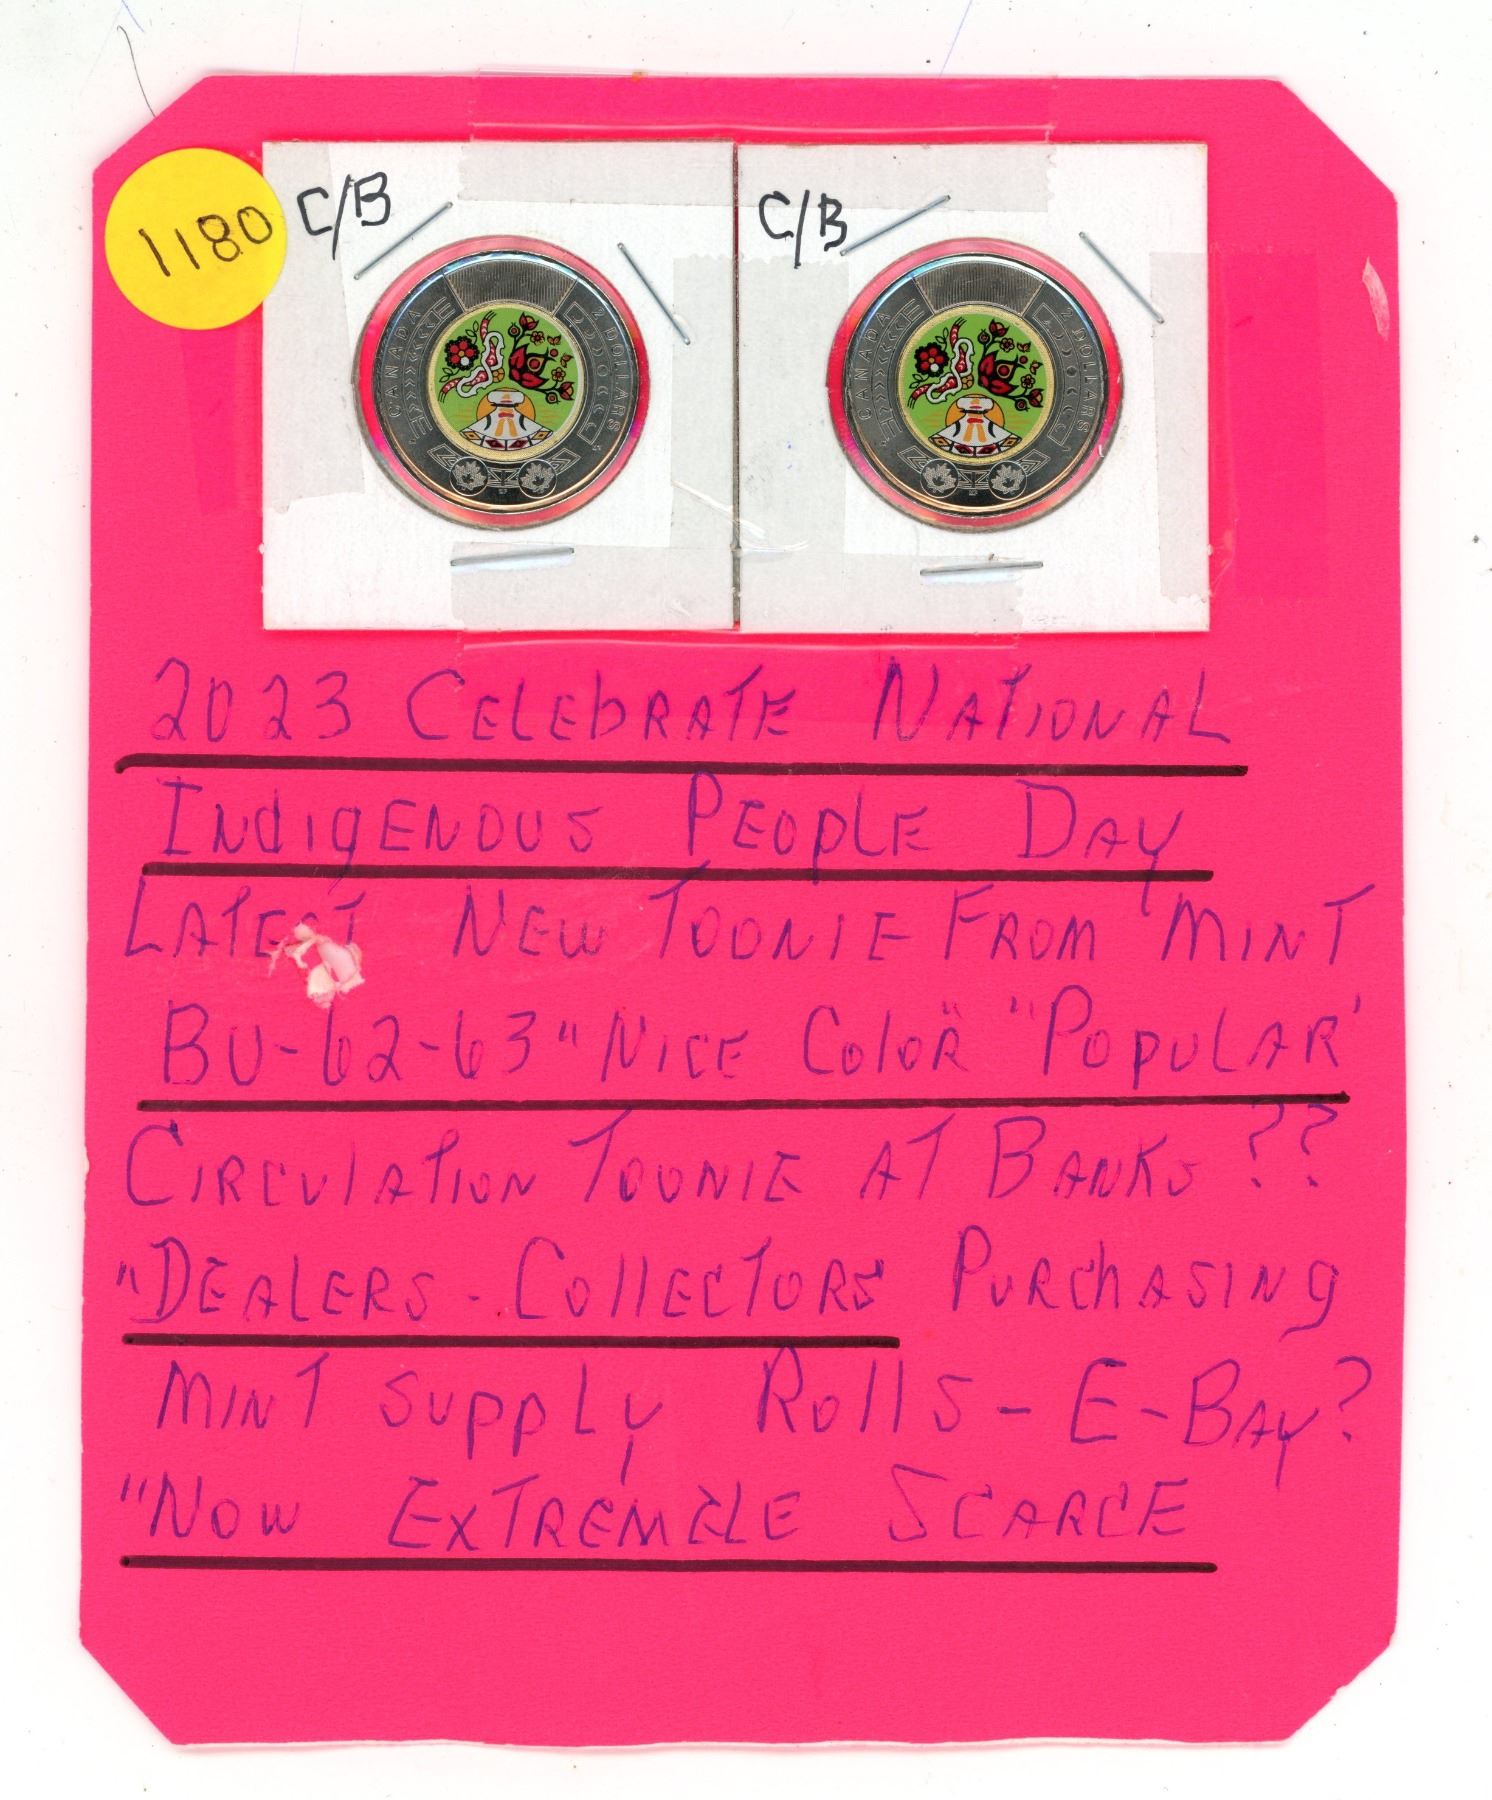 1180
C/B
C/B
CANADA
2 DOLLARS
CANADA
2 DOLLARS
2023 CELEbRATE NATIONAL
INdIgENOUS PEOpLE DAy
LATEST NEW TOONIE FROM MINT
BU-62-63 "NICE COlOR" "POpULAR'
CIRCUlATION TOONIE AT BANKS ??
"DEALERS - COllECTORS PURChASINg
MINT SUppLy ROllS - E-BAy?
"NOW EXTREMELE SCARCE